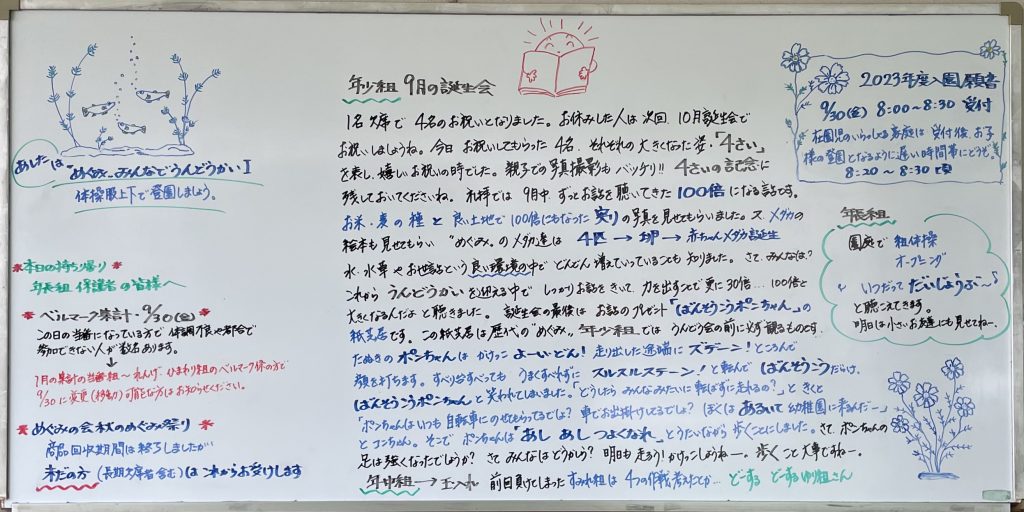 あしたは "めぐみ"みんなでうんどうかい】
体操服上下で登園しましょう。
*本日の持ち帰り*
年長組 保護者の皆様へ
*ベルマーク集計・9/30(金)*
この日の当番になっている方で体調不良や都合で
参加できない人が数名あります。
↓
9/30に変更(移動)可能な方はお知らせください。
*めぐみの会秋のめぐみ祭り*
商品回収期間は終了しましたが
未だの方(長期欠席者含む)はこれからお受けします
年少組 9月の誕生会
1名欠席で4名のお祝いとなりました。お休みした人は次回、10月誕生会で
お祝いしましょうね。今日お祝いしてもらった4名、それぞれの大きくなった姿・「4さい」
を表し、嬉しいお祝いの時でした。親子での写真撮影もバッチリ!! 4さいの記念に
残しておいてくださいね。礼拝では9月中、ずっとお話を聴いてきた100倍になる話です。
お米・麦の種と良い土地で100倍にもなった実りの写真を見せてもらいました。又、メダカの
絵本も見せてもらい "めぐみ"のメダカ達は 4匹→卵→赤ちゃんメダカ誕生
水・水草やお世話という良い環境の中でどんどん増えていっていることも知りました。さて、みんなは?
これからうんどうかいを迎える中でしっかりお話をきいて、力を出すことで更に30倍…100倍と
大きくなるんだよと聴きました。誕生会の最後はお話のプレゼント「ばんそうこうポンちゃん」の
紙芝居です。この紙芝居は歴代の"めぐみ"年少組ではうんどう会の前に必ず観るものです。
たぬきのポンちゃんはかけっこよーいどん!走り出した途端にズデーン!ところんで
顔を打ちます。すべり台すべってもうまくすべれずにスルスルステーン!と転んでばんそうこうだらけ。
ばんそうこうポンちゃんと笑われてしまいました。「どうしたらみんなみたいに転ばずに走れるの?」ときくと
「ポンちゃんはいつも自転車にのせてもらってるでしょ?車でお出掛けしてるでしょ?ぼくはあるいて幼稚園に来るんだー」
とコンちゃん。そこでポンちゃんは「あしあしつよくなれ」とうたいながら歩くことにしました。さて、ポンちゃんの
足は強くなったでしょうか?さてみんなはどうかな?明日も走ろう!かけっこしようねー。歩くこと大事ですねー。
年中組→玉入れ 前回負けてしまったすみれ組は4つの作戦考えたとか… どーする どーするゆり組さん
2023年度入園願書
9/30(金) 8:00〜8:30 受付
在園児のいらっしゃる家庭は受付後、お子
様の登園となるように遅い時間帯にどうぞ。
8:20〜8:30頃
年長組
園庭で組体操
オープニング
♪いつだってだいじょうぶ〜♪
と聴こえてきます。
明日は小さいお友達にも見せてねー。